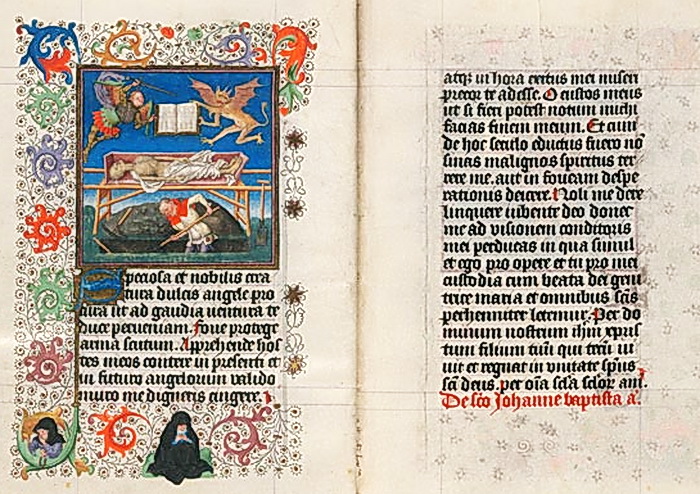 Speciosa et nobilis crea
tura dulcis angele pro
cura ut ad gaudia ventura te
duce perveniam. Fove protege
arma scutum. Apprehende hos
tes meos contere in presenti et
in futuro angelorum valido
muro me digneris cingere.
atq; in hora exitus mei miseri
precor te adesse. O custos meus
ut si fieri potest notum michi
facias finem meum. Et cum
de hoc seculo eductus fuero nō
sinas malignos spiritus ter
rere me. aut in foveam despe
rationis deicere. Noli me dere
linquere iubente deo donec
me ad visionem conditoris
mei perducas in qua simul
et ego pro opere et tu pro mei
custodia cum beata dei geni
trice maria et omnibus scīs
perhenniter letemur. Per do
minum nostrum ihm xpris
tum filium tuū qui tecū vi
vit et regnat in unitate spūs
scī deus. per oīa scla sclor am.
De scō Johanne baptista a.